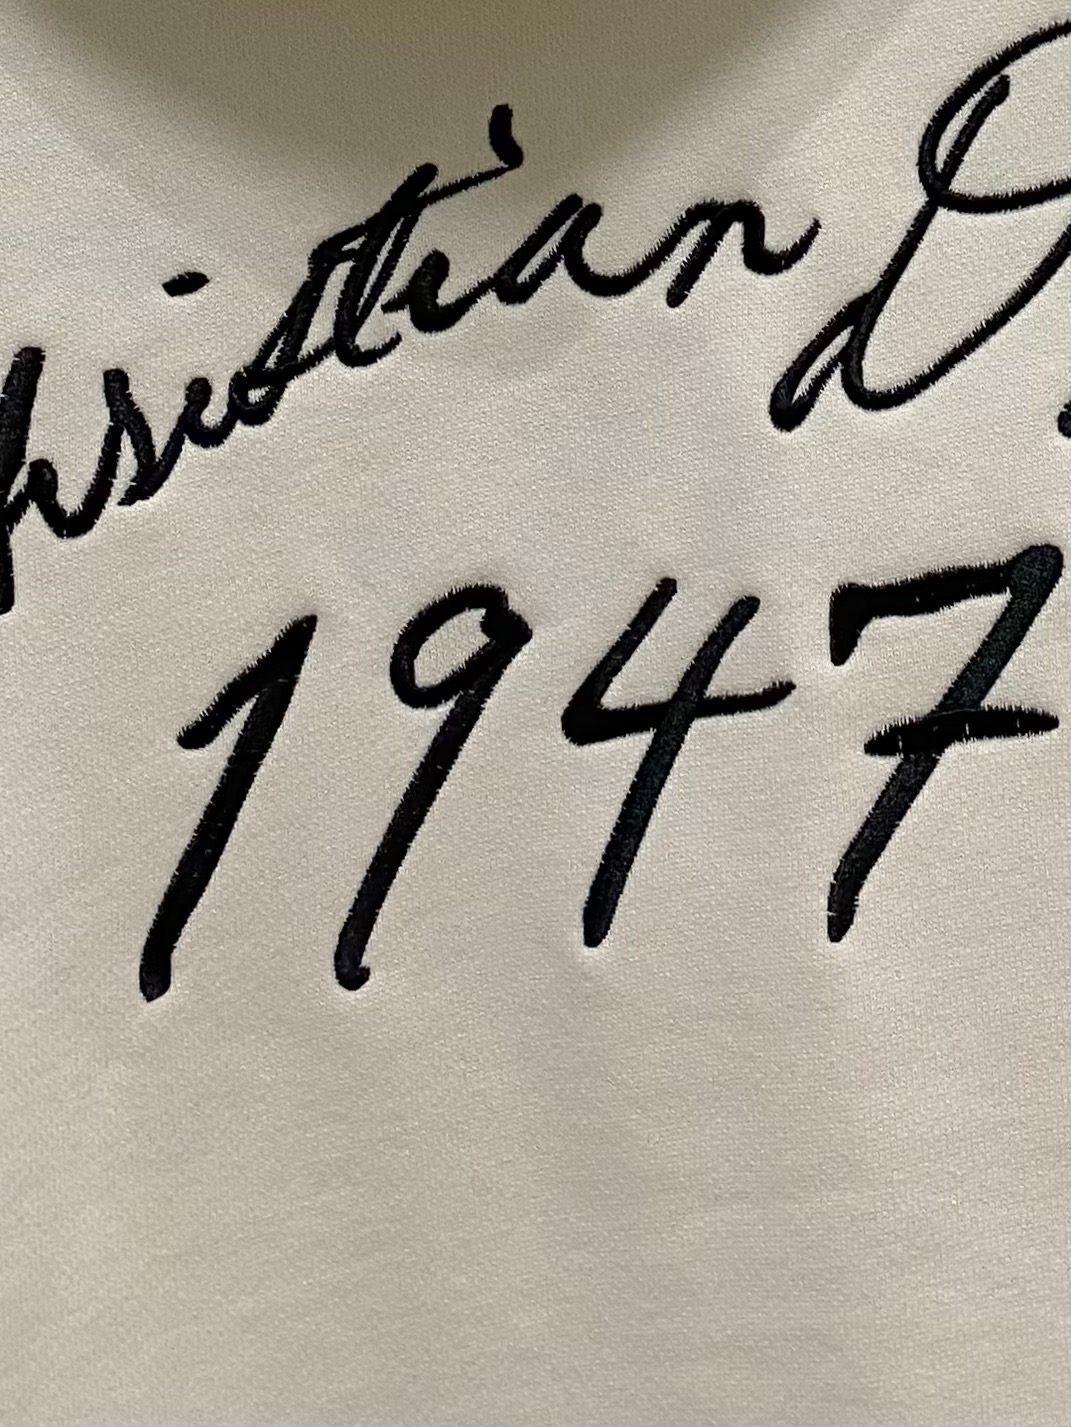 hristian D
1947